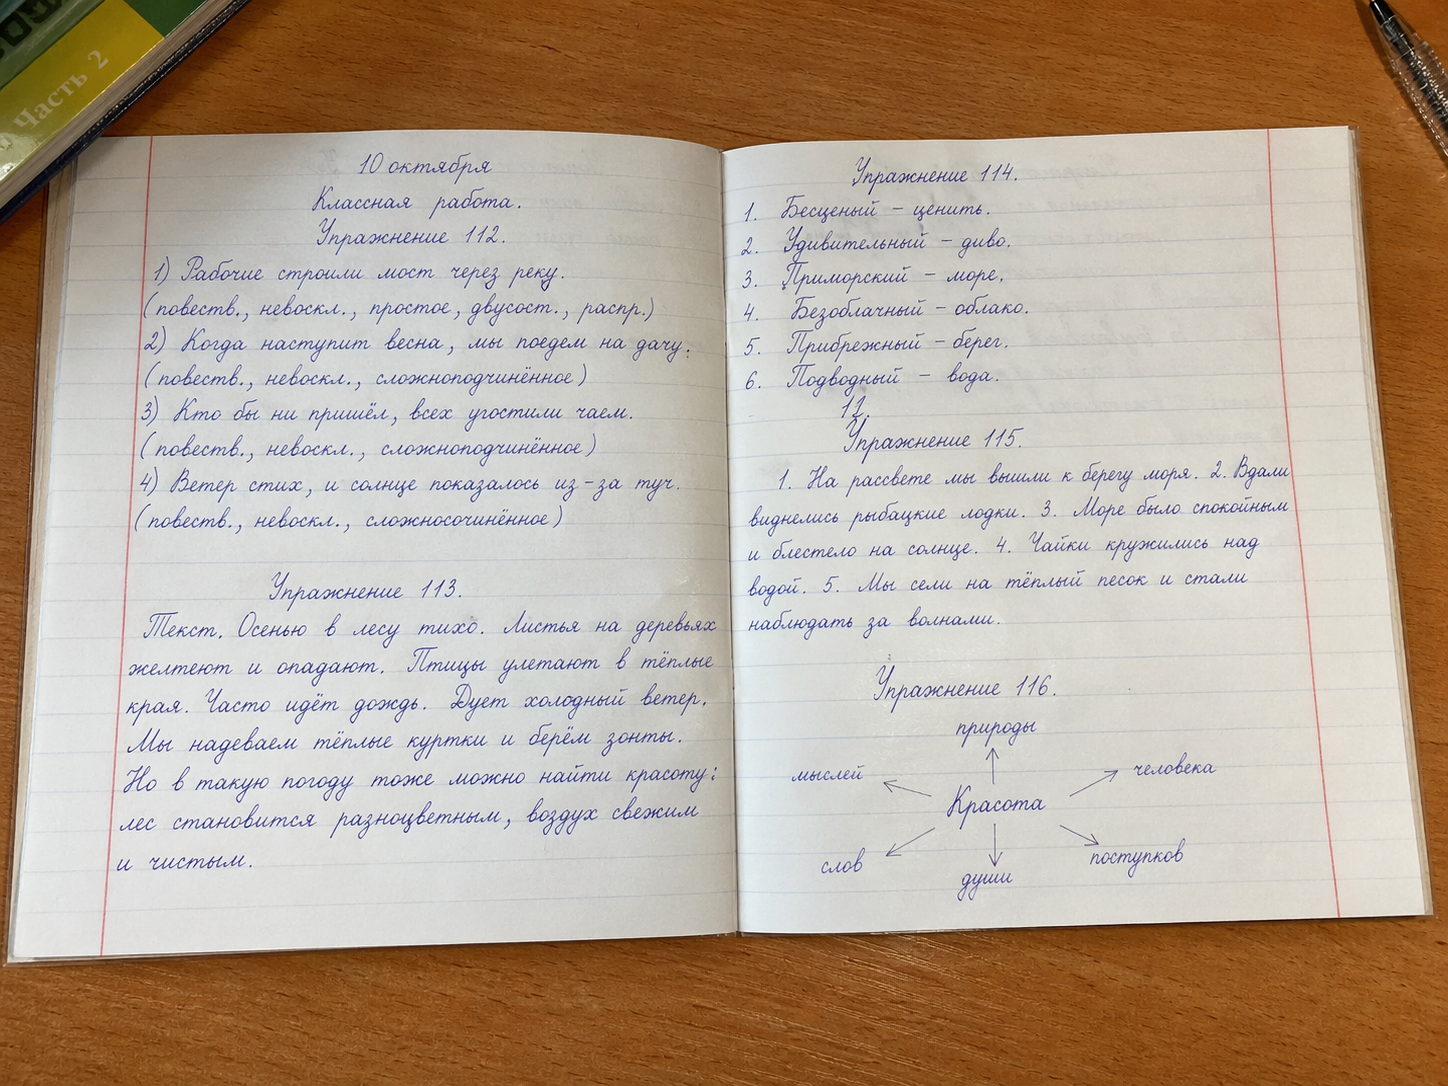 Часть 2
10 октября
Классная работа.
Упражнение 112.
1) Рабочие строили мост через реку.
(повеств., невоскл., простое, двусост., распр.)
2) Когда наступит весна, мы поедем на дачу.
(повеств., невоскл., сложноподчинённое)
3) Кто бы ни пришёл, всех угостили чаем.
(повеств., невоскл., сложноподчинённое)
4) Ветер стих, и солнце показалось из-за туч.
(повеств., невоскл., сложносочинённое)
Упражнение 113.
Текст. Осенью в лесу тихо. Листья на деревьях
желтеют и опадают. Птицы улетают в тёплые
края. Часто идёт дождь. Дует холодный ветер.
Мы надеваем тёплые куртки и берём зонты.
Но в такую погоду тоже можно найти красоту:
лес становится разноцветным, воздух свежим
и чистым.
Упражнение 114.
1. Бесценый – ценить.
2. Удивительный – диво.
3. Приморский – море.
4. Безоблачный – облако.
5. Прибрежный – берег.
6. Подводный – вода.
12.
Упражнение 115.
1. На рассвете мы вышли к берегу моря. 2. Вдали
виднелись рыбацкие лодки. 3. Море было спокойным
и блестело на солнце. 4. Чайки кружились над
водой. 5. Мы сели на тёплый песок и стали
наблюдать за волнами.
Упражнение 116.
природы
мыслей человека
Красота
слов поступков
души